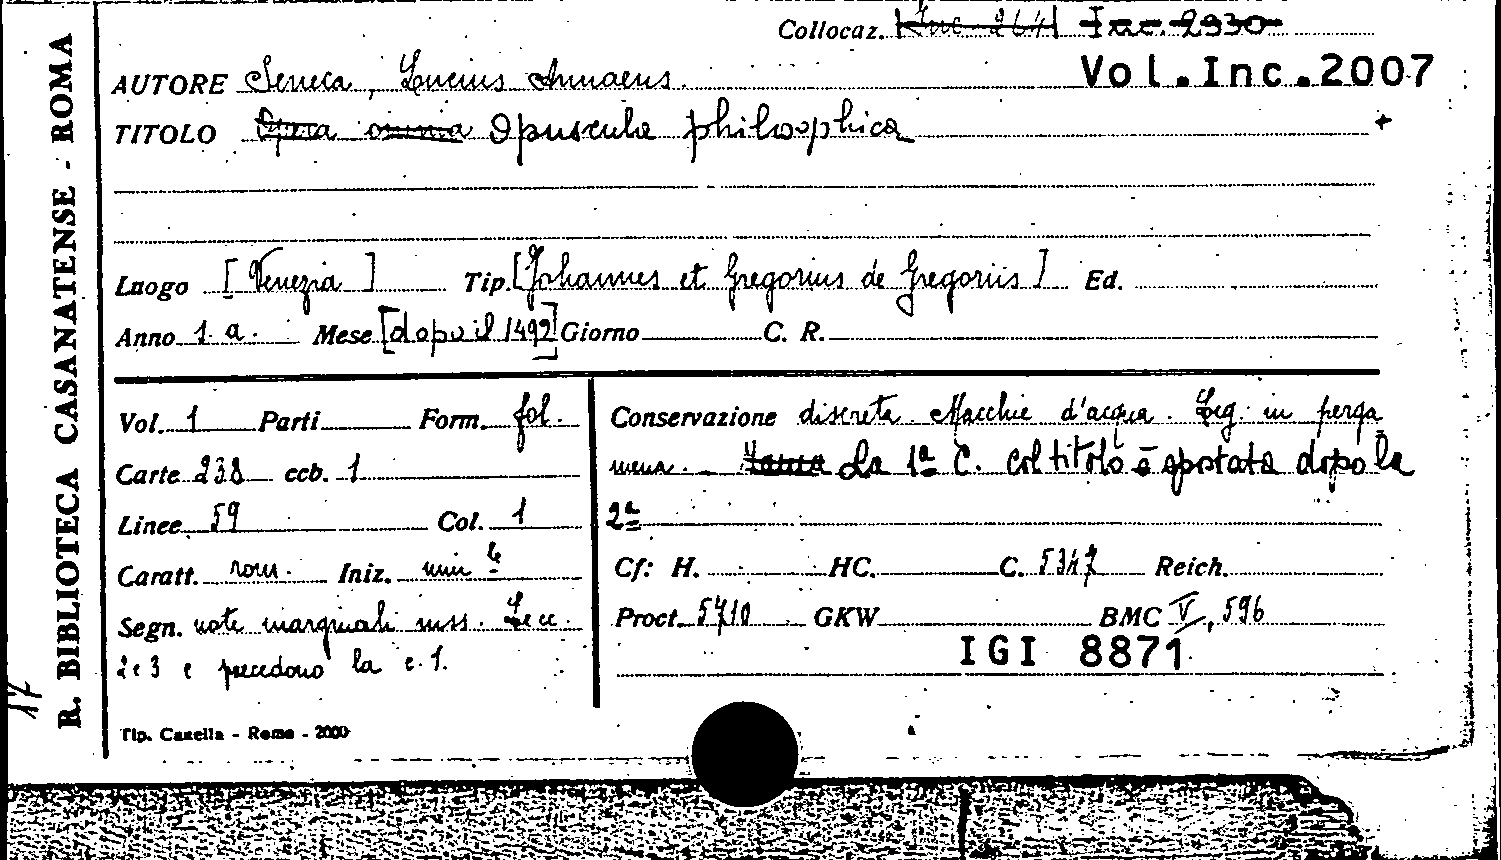 R. BIBLIOTECA CASANATENSE - ROMA
Collocaz. Inc. 264 Inc. 2930
Vol.Inc.2007
AUTORE Seneca, Lucius Annaeus.
TITOLO Opera omnia Opuscula philosophica
Luogo [Venezia] Tip. [Johannes et Gregorius de Gregoriis] Ed.
Anno s. a. Mese [dopo il 1492] Giorno C. R.
Vol. 1 Parti Form. fol.
Carte 238 ccb. 1
Linee 59 Col. 1
Caratt. rom. Iniz. min.
Segn. note marginali mss. Le cc.
2 e 3 precedono la c. 1.
Conservazione discreta. Macchie d'acqua. Leg. in perga
mena. La 1ª C. col titolo è spostata dopo la
2ª
Cf: H. HC. C. 5347 Reich.
Proct. 5710 GKW BMC V, 596
IGI 8871
Tip. Casella - Roma - 2000
17